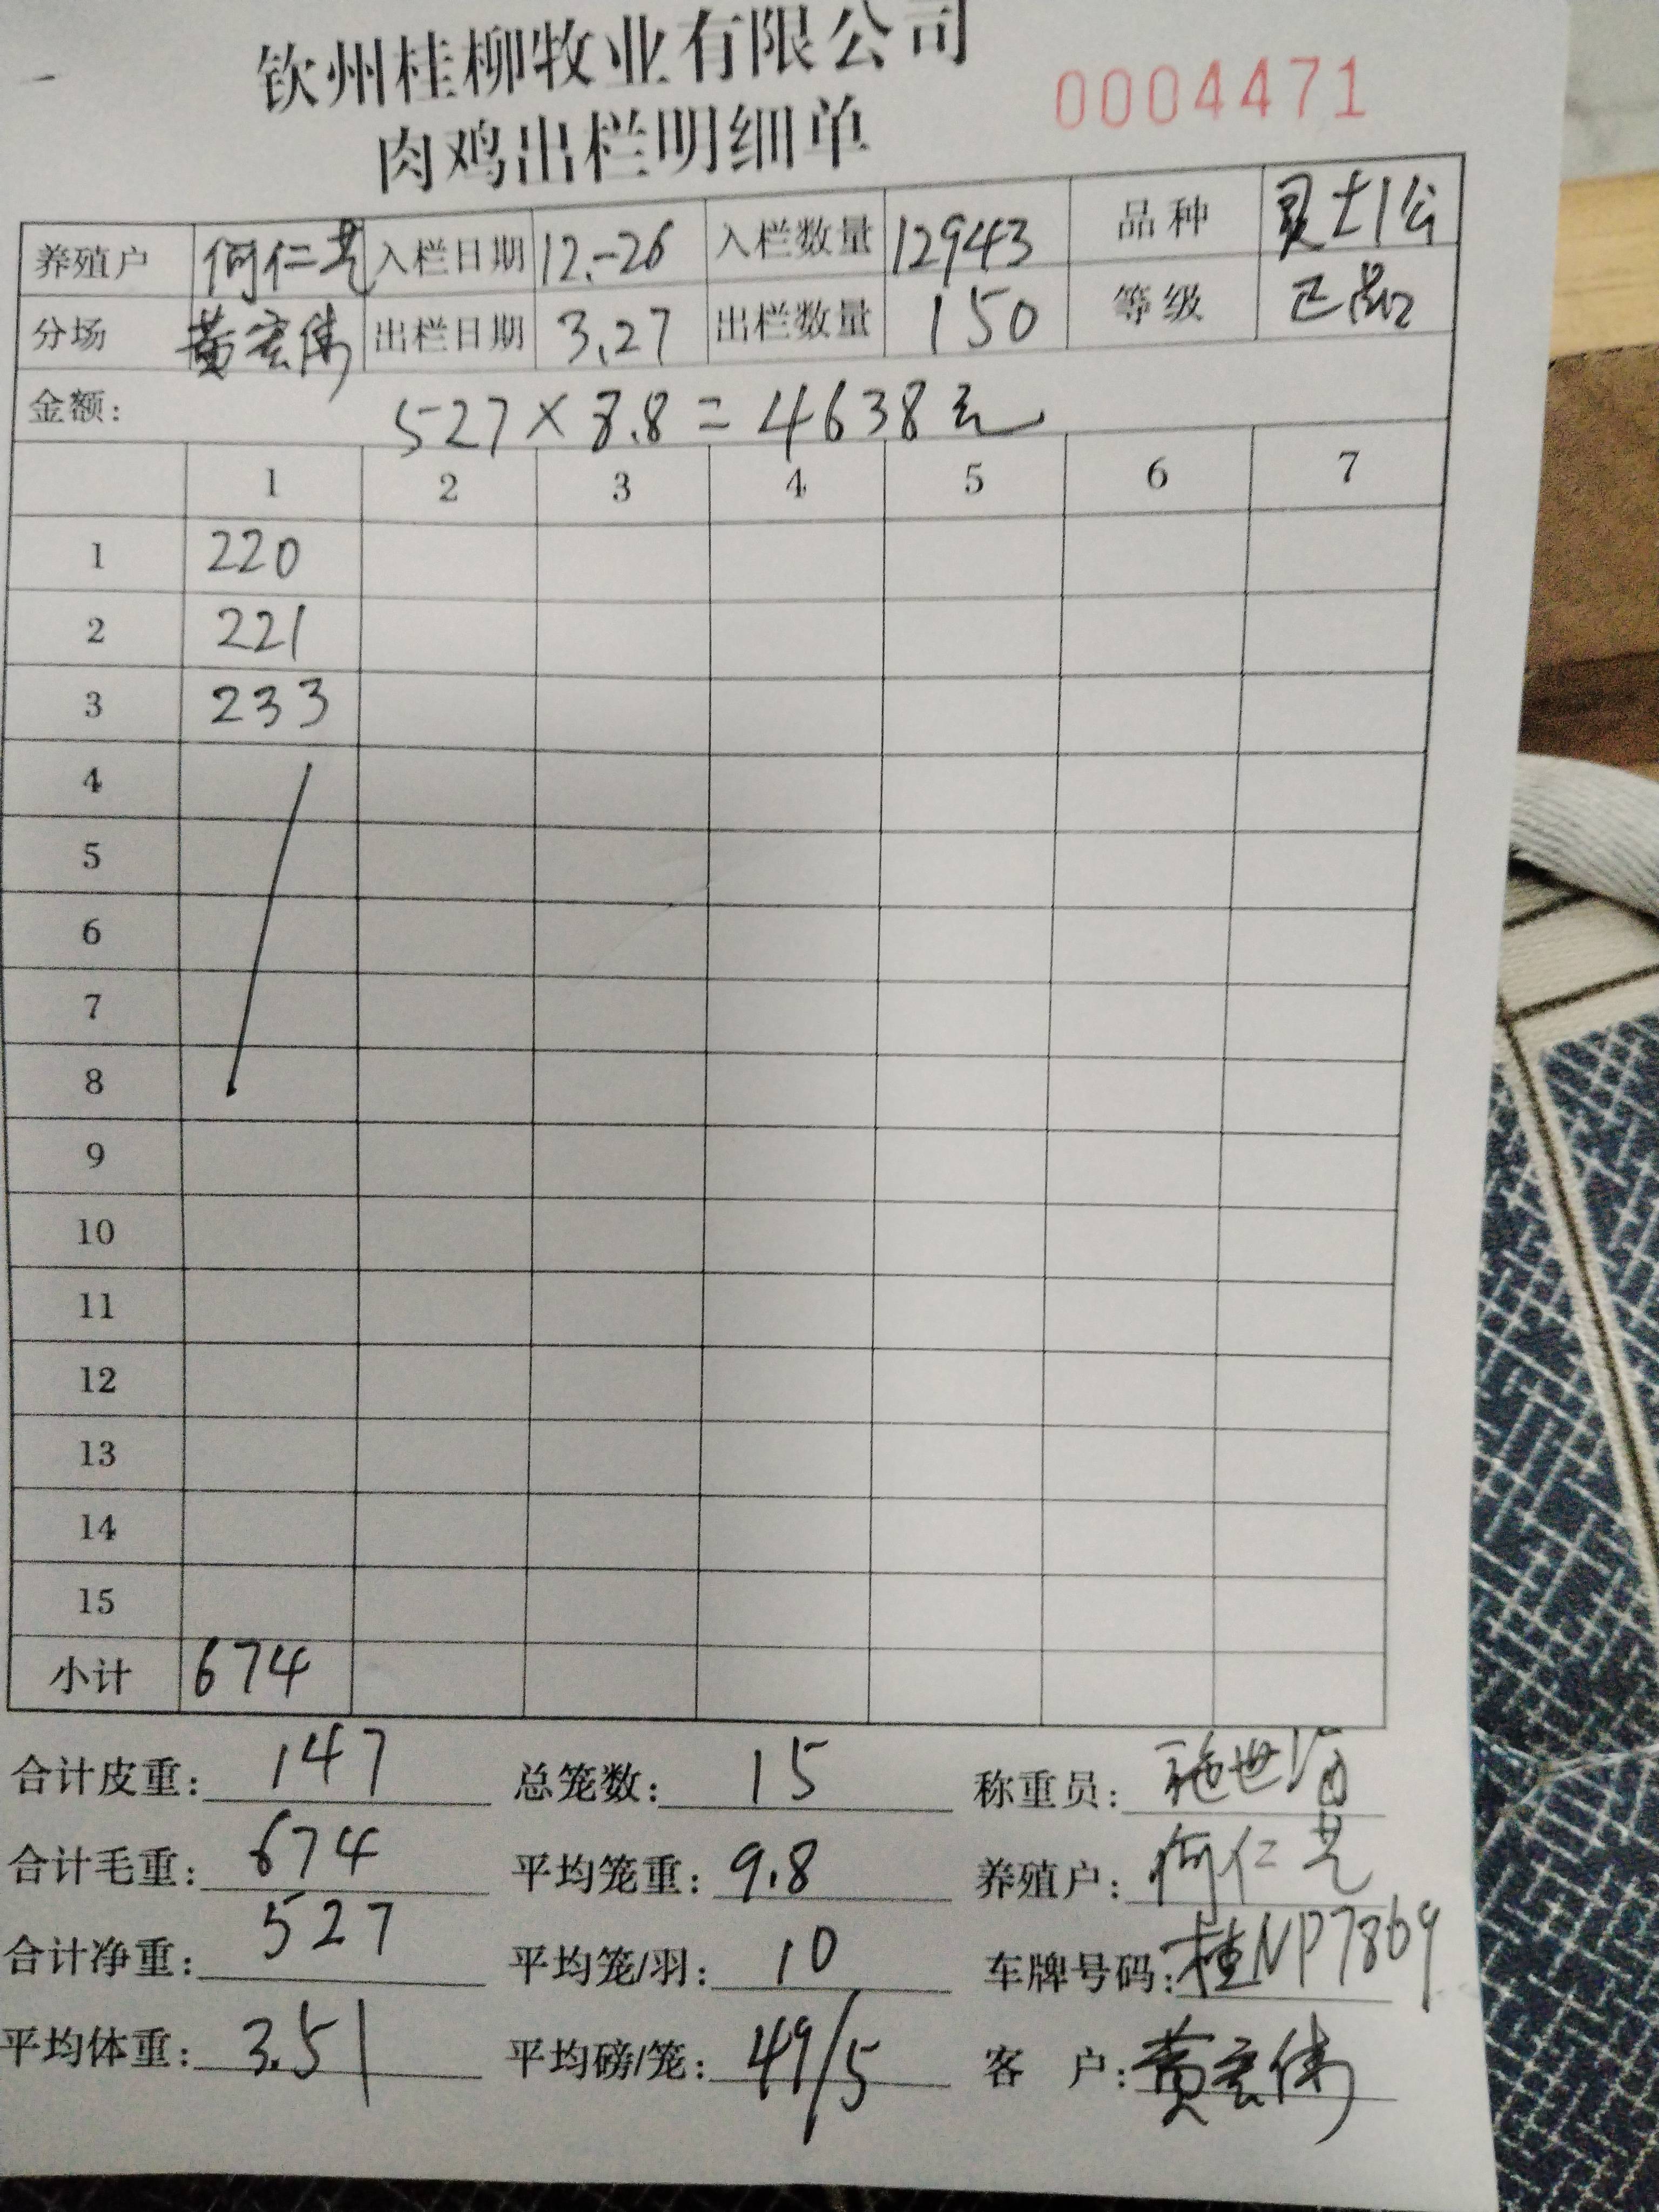 钦州桂柳牧业有限公司
肉鸡出栏明细单
0004471
养殖户 何仁艺 入栏日期 12.-26 入栏数量 12943 品种 灵土1公
分场 黄宏伟 出栏日期 3.27 出栏数量 150 等级 正品
金额: 527×8.8=4638元
1 2 3 4 5 6 7
1 220
2 221
3 233
4
5
6
7
8
9
10
11
12
13
14
15
小计 674
合计皮重: 147 总笼数: 15 称重员:
合计毛重: 674 平均笼重: 9.8 养殖户: 何仁艺
合计净重: 527 平均笼/羽: 10 车牌号码: 桂NP7869
平均体重: 3.51 平均磅/笼: 49/5 客 户: 黄宏伟